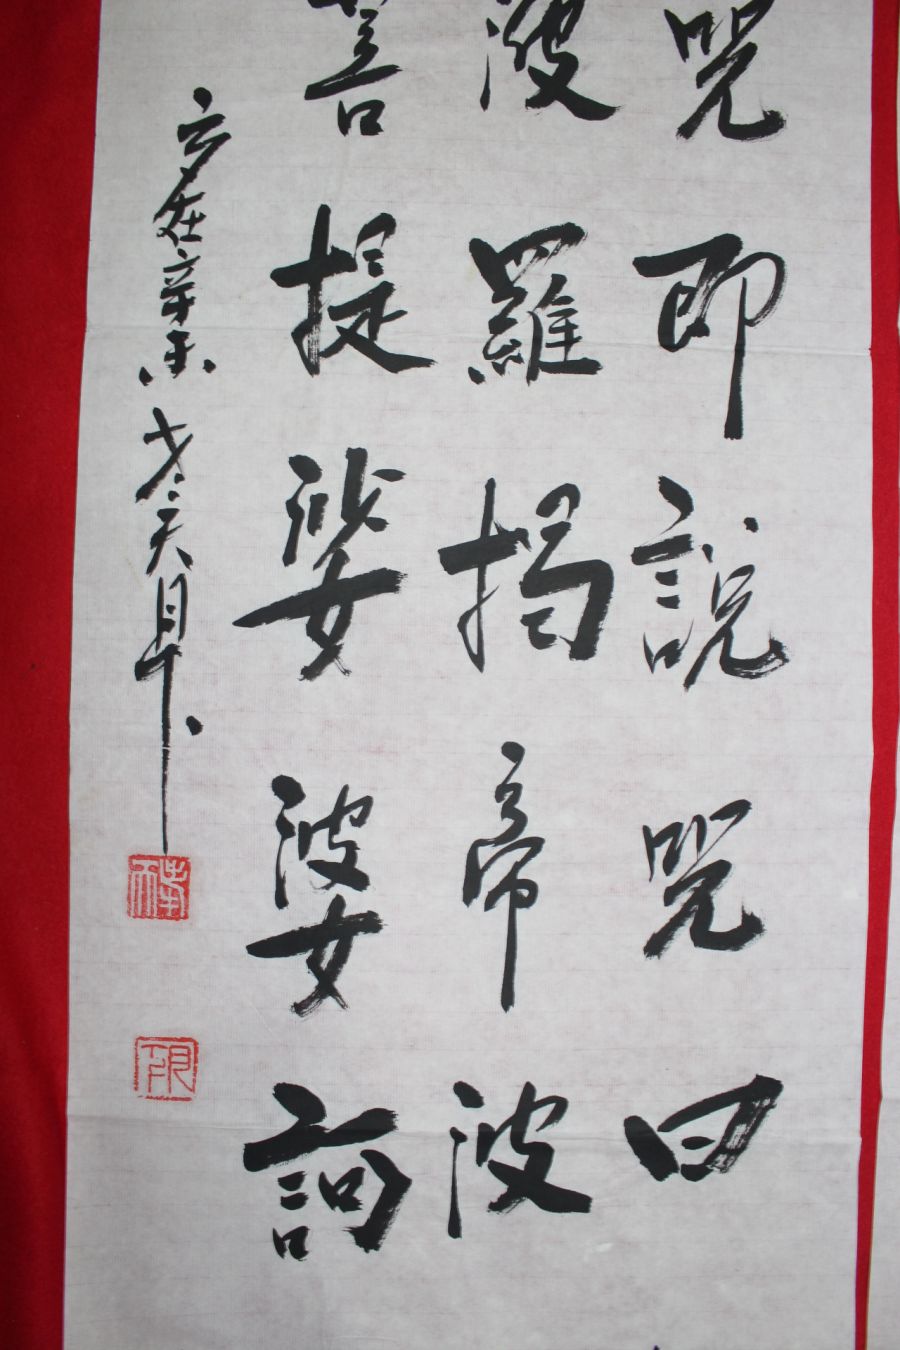 咒即說咒曰
波羅揭帝波
菩提娑婆訶
歲在辛未